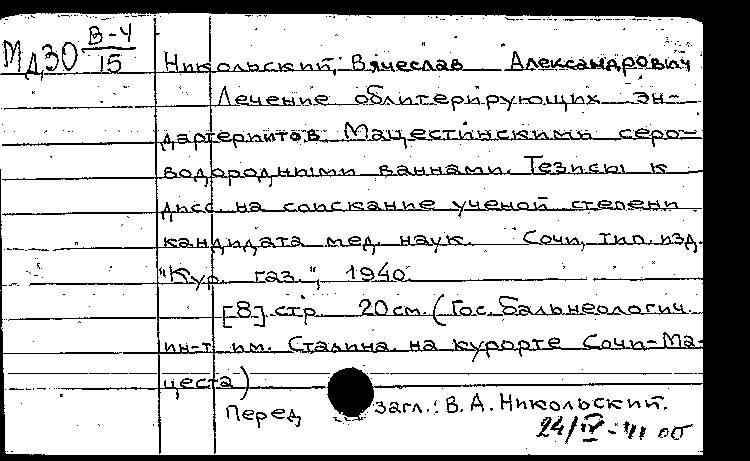 В-4
МД30 15
Никольский, Вячеслав Александрович
Лечение облитерирующих эн-
дартериитов Мацестинскими серо-
водородными ваннами. Тезисы к
дисс. на соискание ученой степени
кандидата мед. наук. Сочи, тип. изд.
"Кур. газ.", 1940.
[8] стр. 20 см. (Гос. Бальнеологич.
ин-т им. Сталина на курорте Сочи-Ма-
цеста)
Перед загл.: В. А. Никольский.
24/IV-41